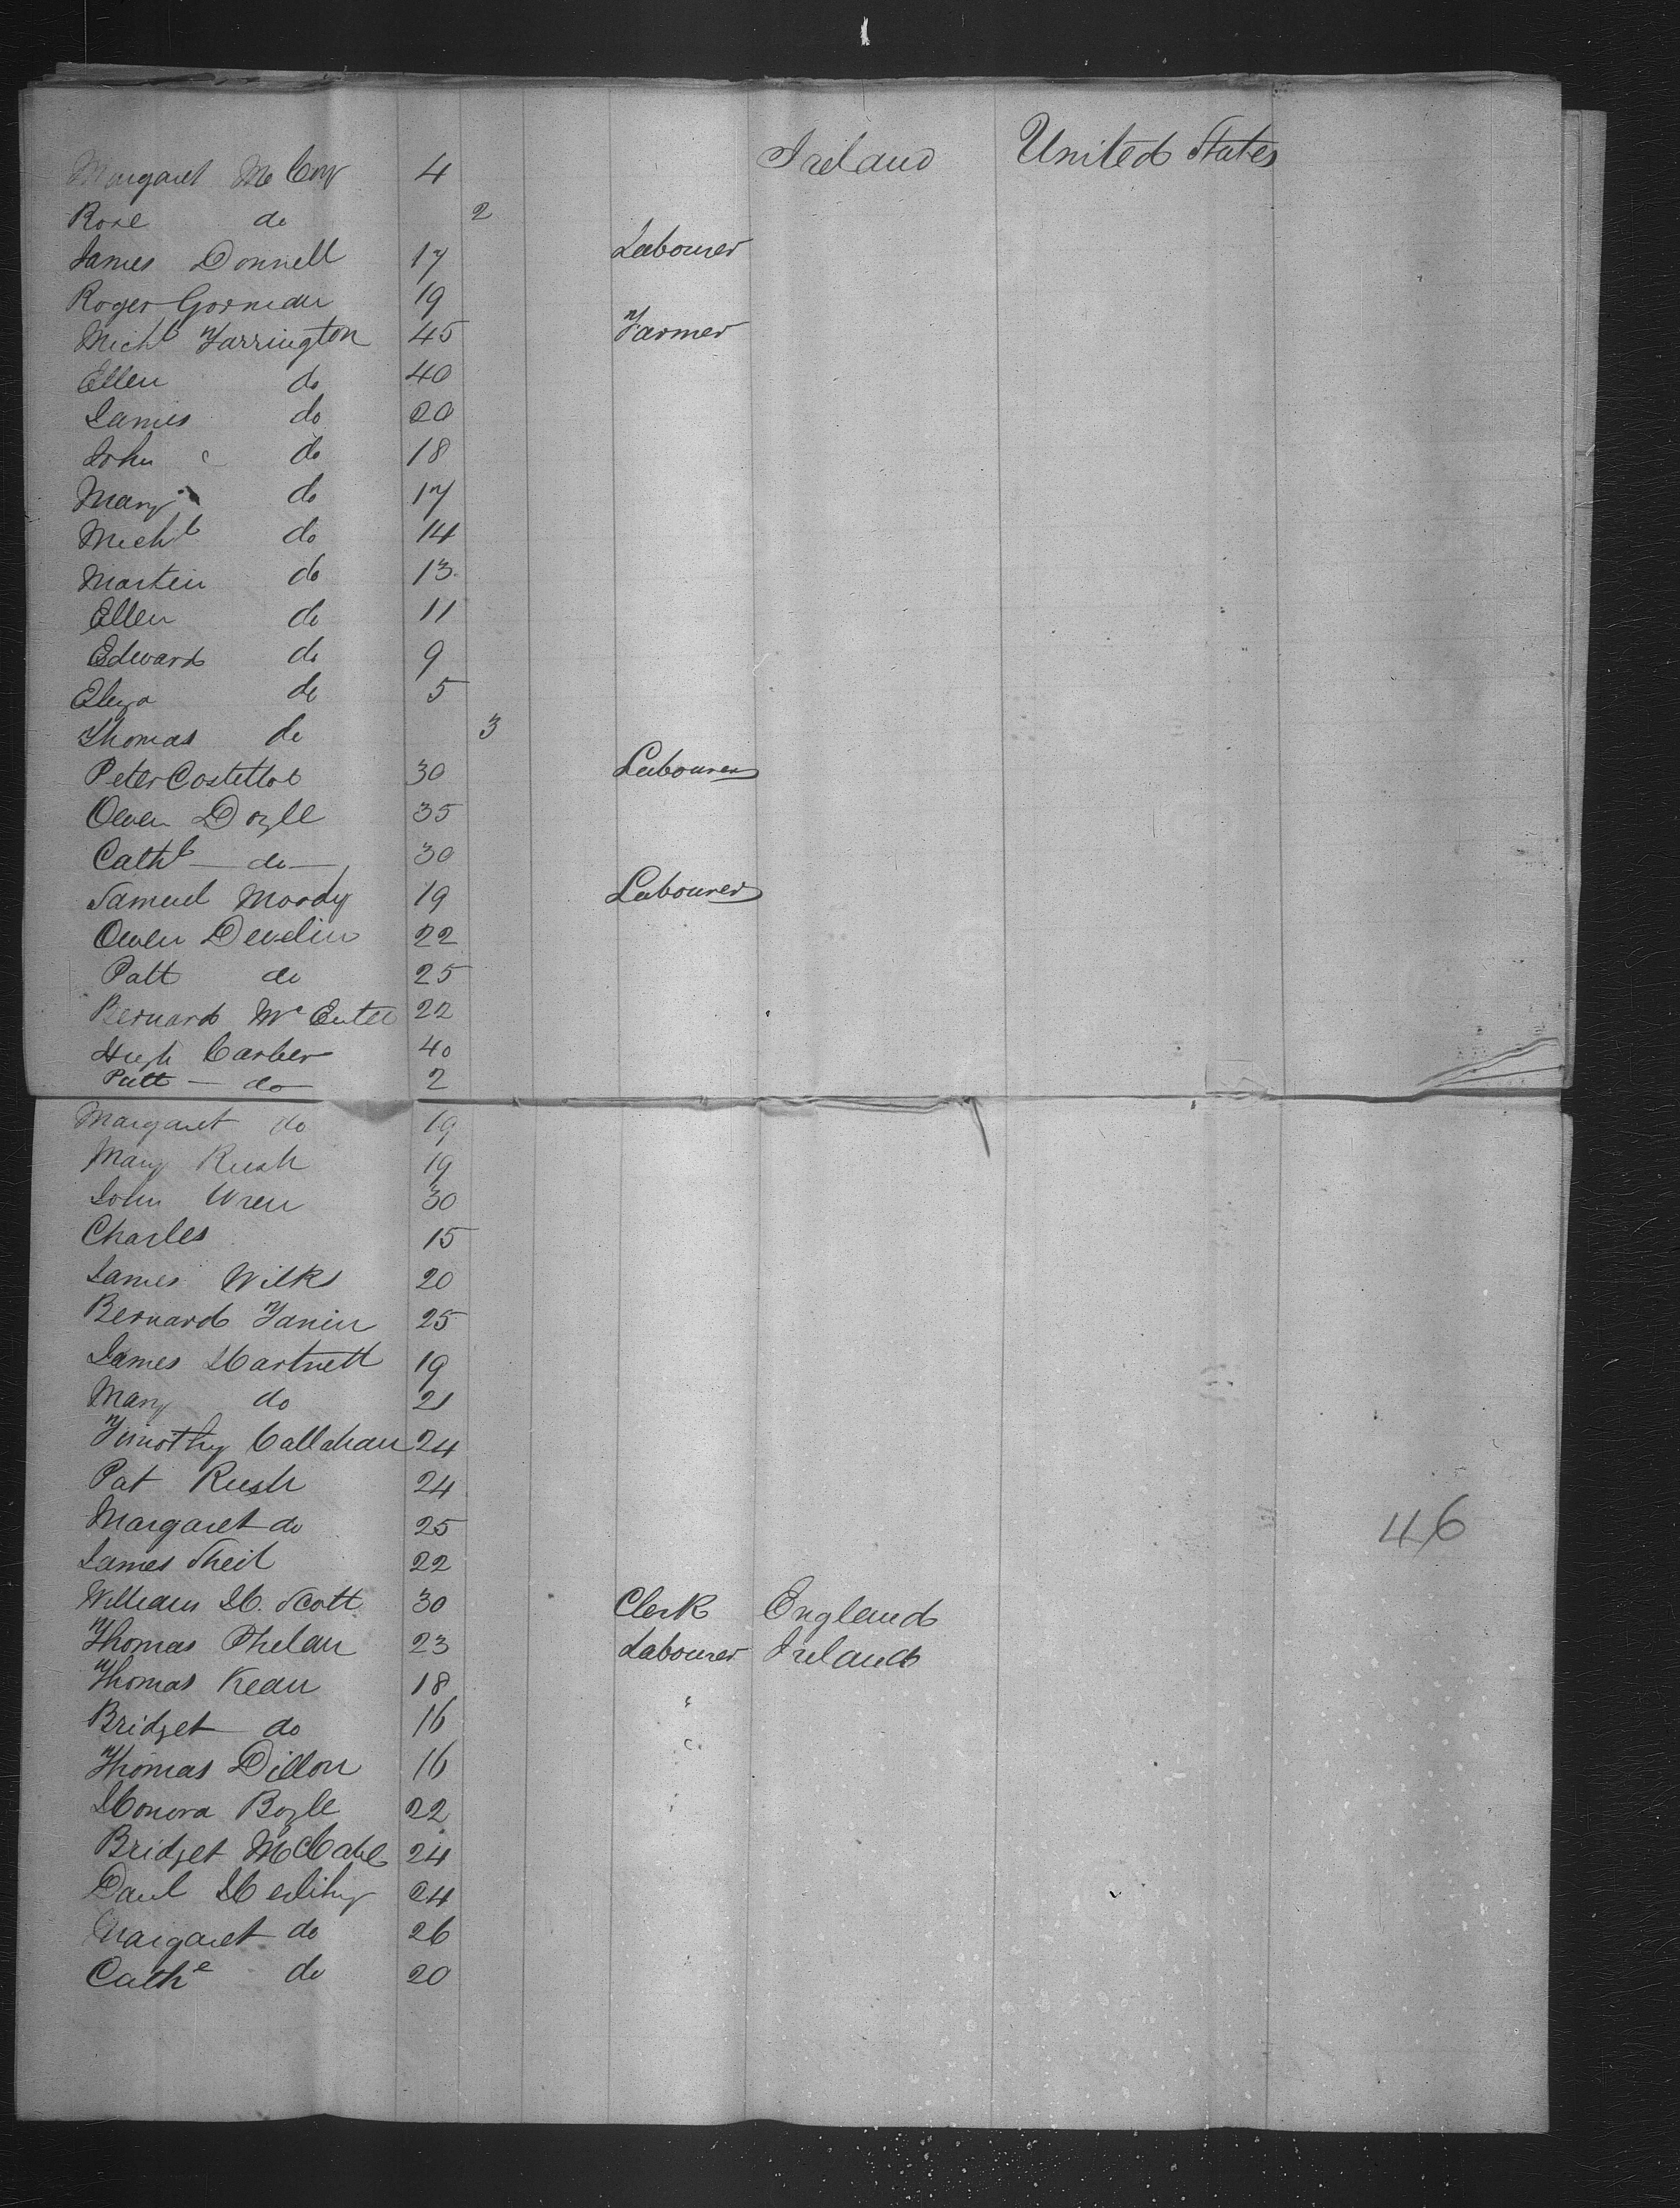 Margaret McCoy 4 Ireland United States
Rose do 2
James Donnell 17 Labourer
Roger Gorman 19
Michl Farrington 45 Farmer
Ellen do 40
James do 20
John do 18
Mary do 17
Michl do 14
Martin do 13
Ellen do 11
Edward do 9
Eliza do 5
Thomas do 3
Peter Costelloe 30 Labourer
Owen Doyle 35
Cathe do 30
Samuel Moody 19 Labourer
Owen Develin 22
Patt do 25
Bernard McEntee 22
Hugh 40
Patt do 2
Margaret do 19
Mary Rush 19
John Wren 30
Charles 15
James Wilks 20
Bernard Fanin 25
James Hartnett 19
Mary do 21
Timothy Callahan 24
Pat Rush 24
Margaret do 25 46
James Sheil 22
William H. Scott 30 Clerk England
Thomas Phelan 23 Labourer Ireland
Thomas Kean 18 "
Bridget do 16 "
Thomas Dillon 16
Honora Boyle 22
Bridget McCabe 24
Danl Herlihy 24
Margaret do 26
Cathe do 20